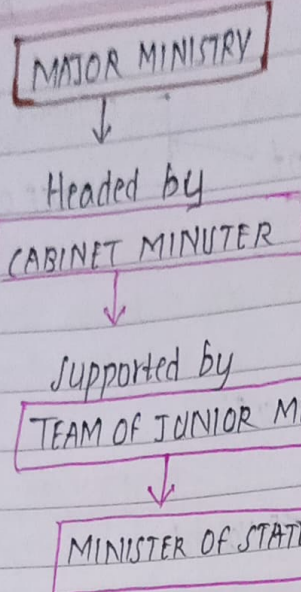 MAJOR MINISTRY
Headed by
CABINET MINUTER
Supported by
TEAM OF JUNIOR
MINISTER OF STATE